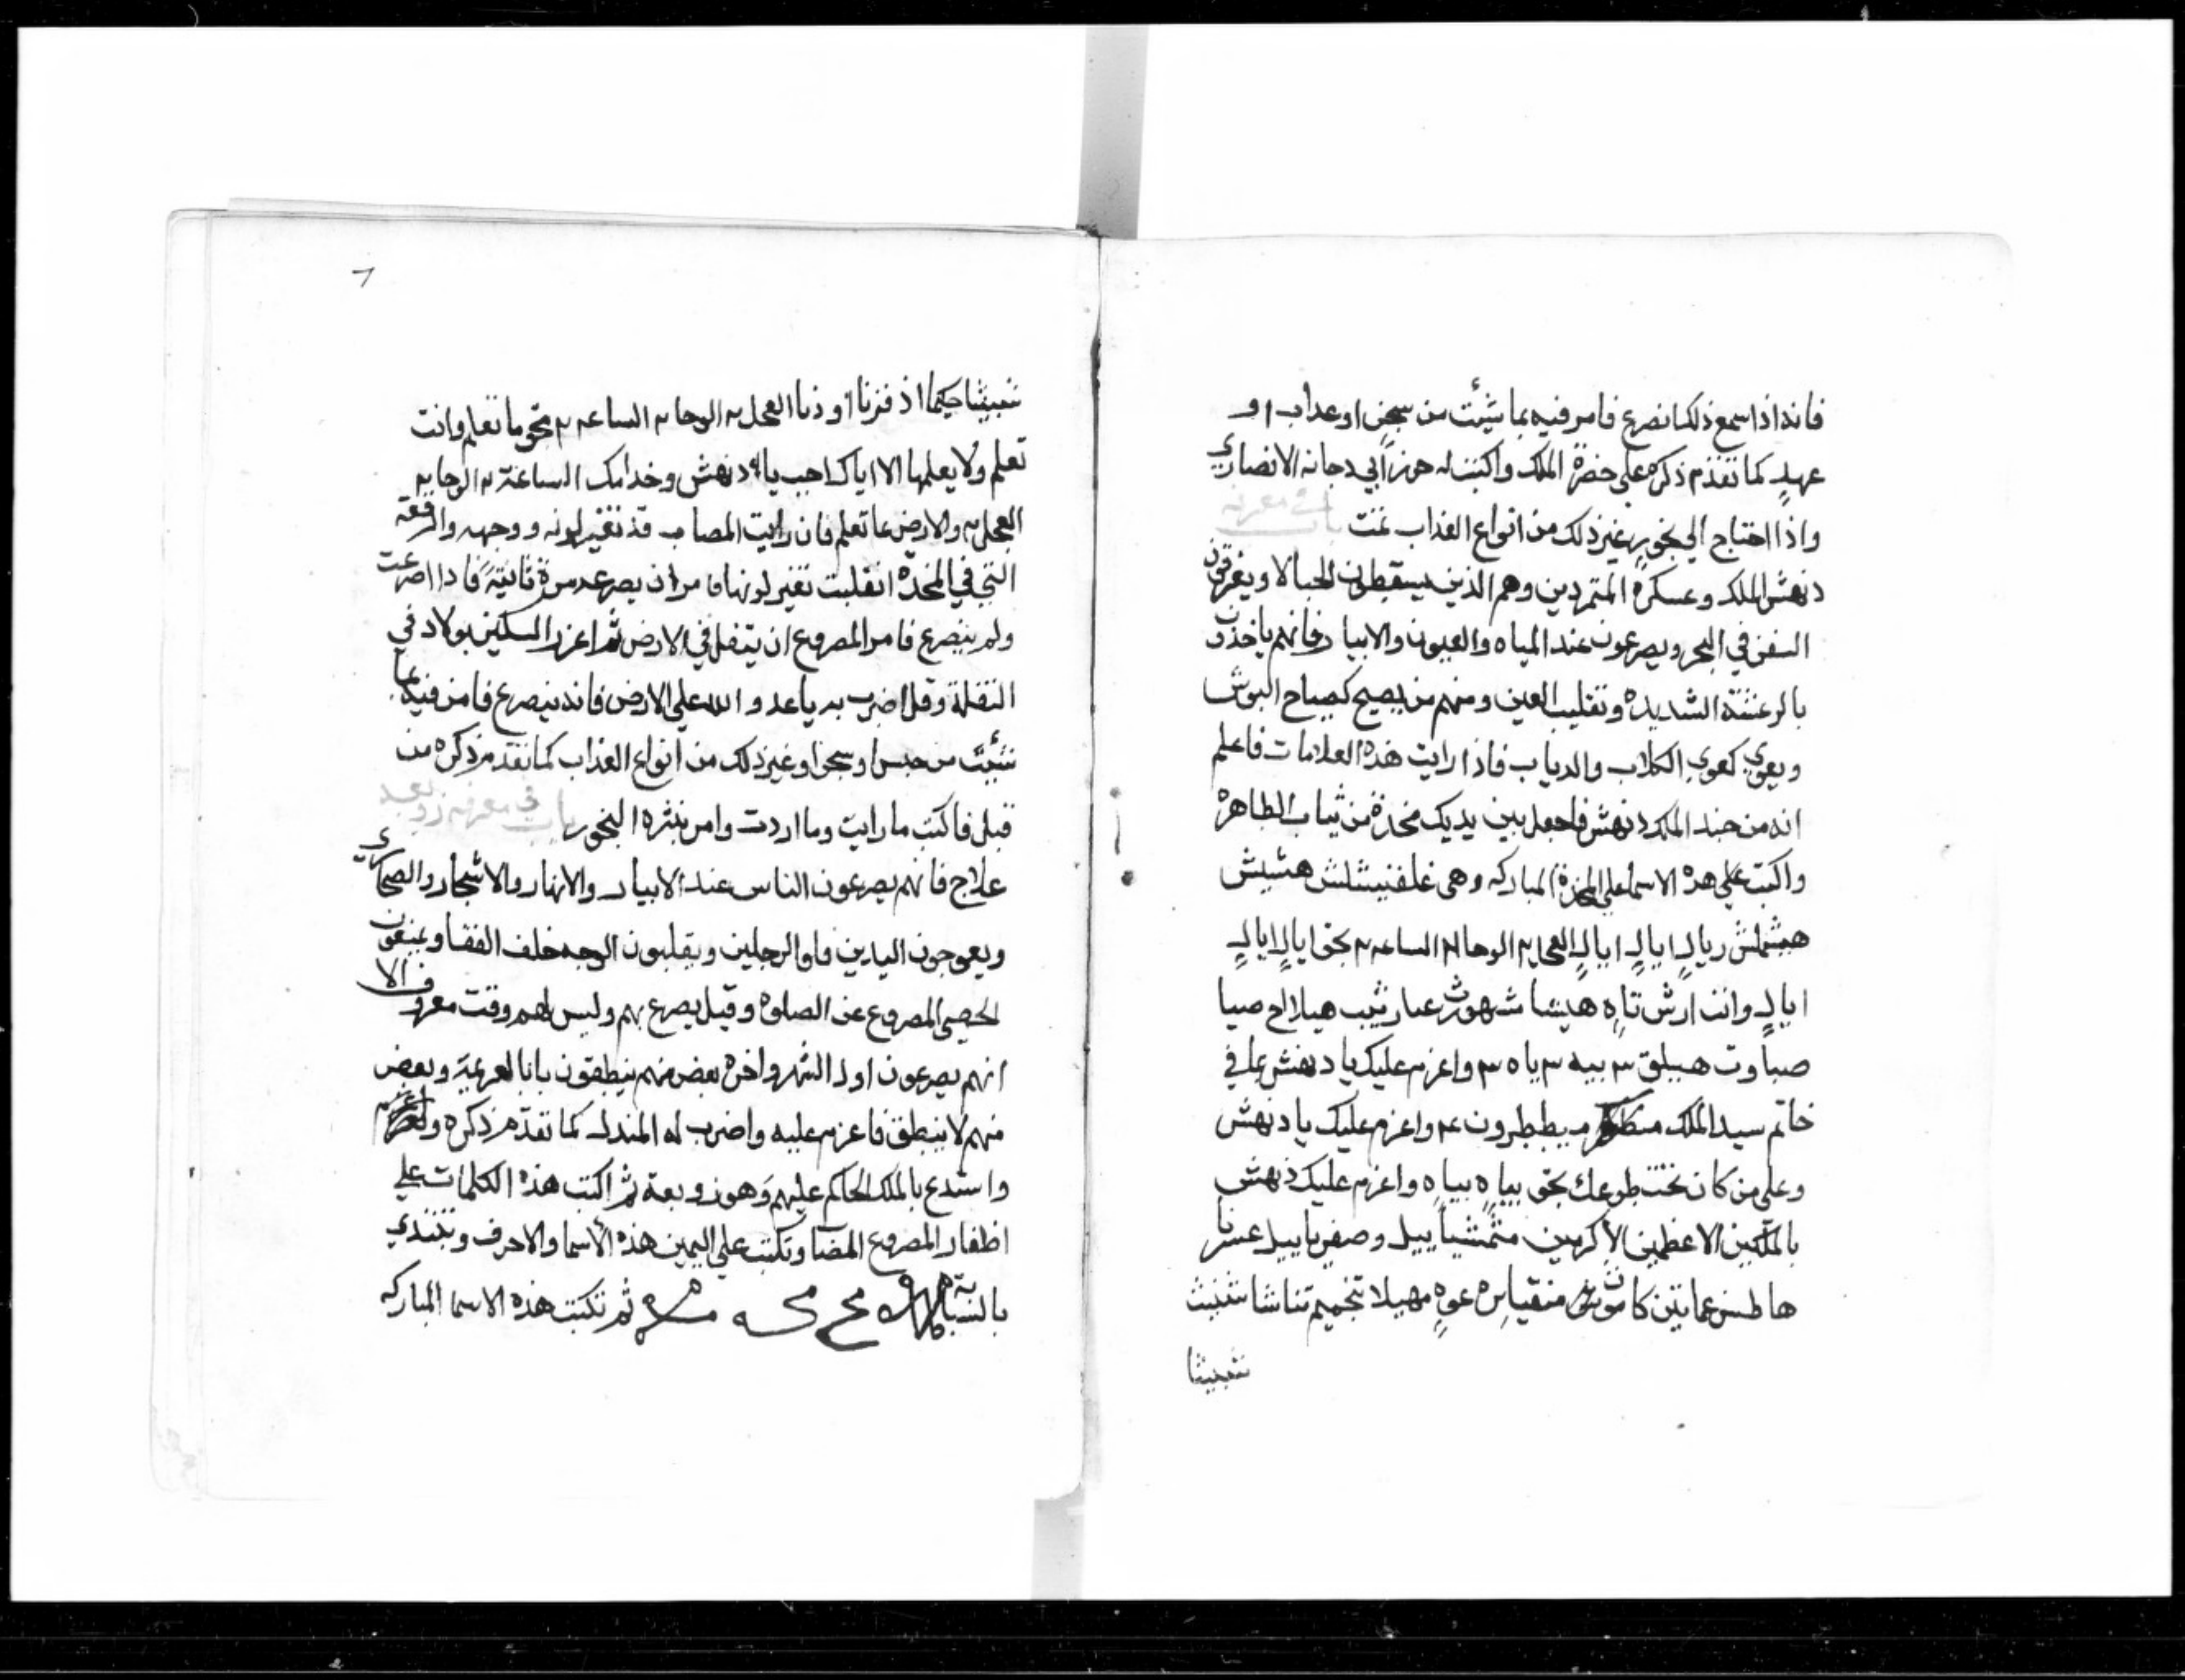 فانه اذا سمع ذلك انصرع فامر فيه بما شيئت من سجن او عداب او
عهدٍ كما تقدم ذكره على حضرة الملك واكتب له حرز ابي دجانه الانصاري
واذا احتاج الي بخور غير ذلك من انواع العذاب تمت باب في معرفة
دنهش الملك وعسكره المتمردين وهم الذين يسقطون الحبالا ويغرقون
السفن في البحر ويصرعون عند المياه والعيون والابيار فانهم ياخذون
بالرعشة الشديده وتقليب العين ومنهم من يصيح كصياح البوش
ويعوي كعوي الكلاب والدياب فاذا رايت هذه العلامات فاعلم
انه من جند الملك دنهش فاجعل بين يديك مخدة من ثياب الطاهره
واكتب علي هده الاسما علي المخدة المباركه وهي غلفنيشلش هشيش
هبشملش ريالٍ ايالٍ ايالٍ العجل ٢ الوحا ٢ الساعه ٢ بحق ايالٍ ايالٍ
ايالٍ وانت ارش تاه هيشا شهوث عبار ثيب هيلا لح صيا
صباوت هيلق ٣ بيه ٣ ياه ٣ واعزم عليك يا دنهش بما في
خاتم سيد الملك بيططرون عم واعزم عليك يا دنهش
وعلى من كان تحت طوعك بحق بياه بياه واعزم عليك دنهش
بالملكين الاعظمين الاكرمين متمشياييل وصفرياييل عشرنا
هاطس عمايتن منقياس عوه مهيلا تناشا شنيث
شبيثا
٦
شبيثا حيما اذ فزنا اوذنا العجل ٢ الوحا ٢ الساعه ٢ بحق ما تعلم وانت
تعلم ولا يعلمها الا اياك اجب يا دنهش وخدامك الساعة ٢ الوحا ٢
العجل ٢ والارض عا تعلم فان رايت المصاب قد تغير لونه ووجهه والرقعه
التي في المخده انقلبت تغير لونها فامر ان يصرعه مرة ثانيةً فادا اصرعت
ولم ينصرع فامر المصروع ان يتفل في الارض ثم اعزز السكين بولاد في
التفلة وقل اضرب به يا عدو الله علي الارض فانه ينصرع فامر فيه بما
شئت من حبس او سجن او غير ذلك من انواع العذاب كما تقدم ذكره من
قبل فاكتب ما رايت وما اردت وامر بنثره البخور باب في معرفة زوبعه
علاج فانهم يصرعون الناس عند الابيار والانهار والاشجار والصحاري
ويعوجون اليدين فاو الرجلين ويقلبون الوجه خلف القفا ويمنعون
لحصي المصروع عن الصلوة وقيل يصرع بهم وليس لهم وقت معروف الا
انهم يصرعون اول الشهر واخره بعض منهم ينطقون بانا العربية وبعض
منهم لا ينطق فاعزم عليه واضرب له المندل كما تقدم ذكره واعزم
واستدع بالملك الحاكم عليهم وهو زوبعة ثم اكتب هذه الكلمات علي
اظفار المصروع المصاب وتكتب علي اليمين هذه الاسما والاحرف وتبتدي
بالسبابة ثم تكتب هذه الاسما المباركه